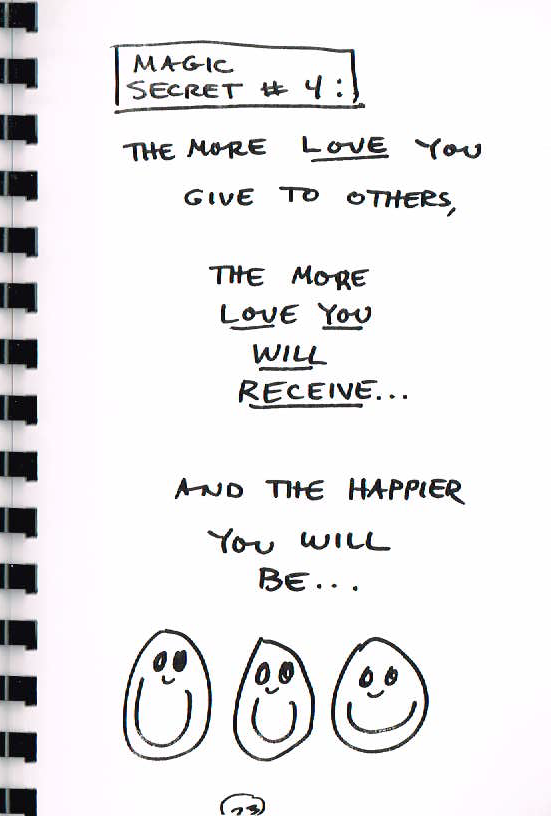 MAGIC
SECRET # 4:
THE MORE LOVE YOU
GIVE TO OTHERS,
THE MORE
LOVE YOU
WILL
RECEIVE...
AND THE HAPPIER
YOU WILL
BE...